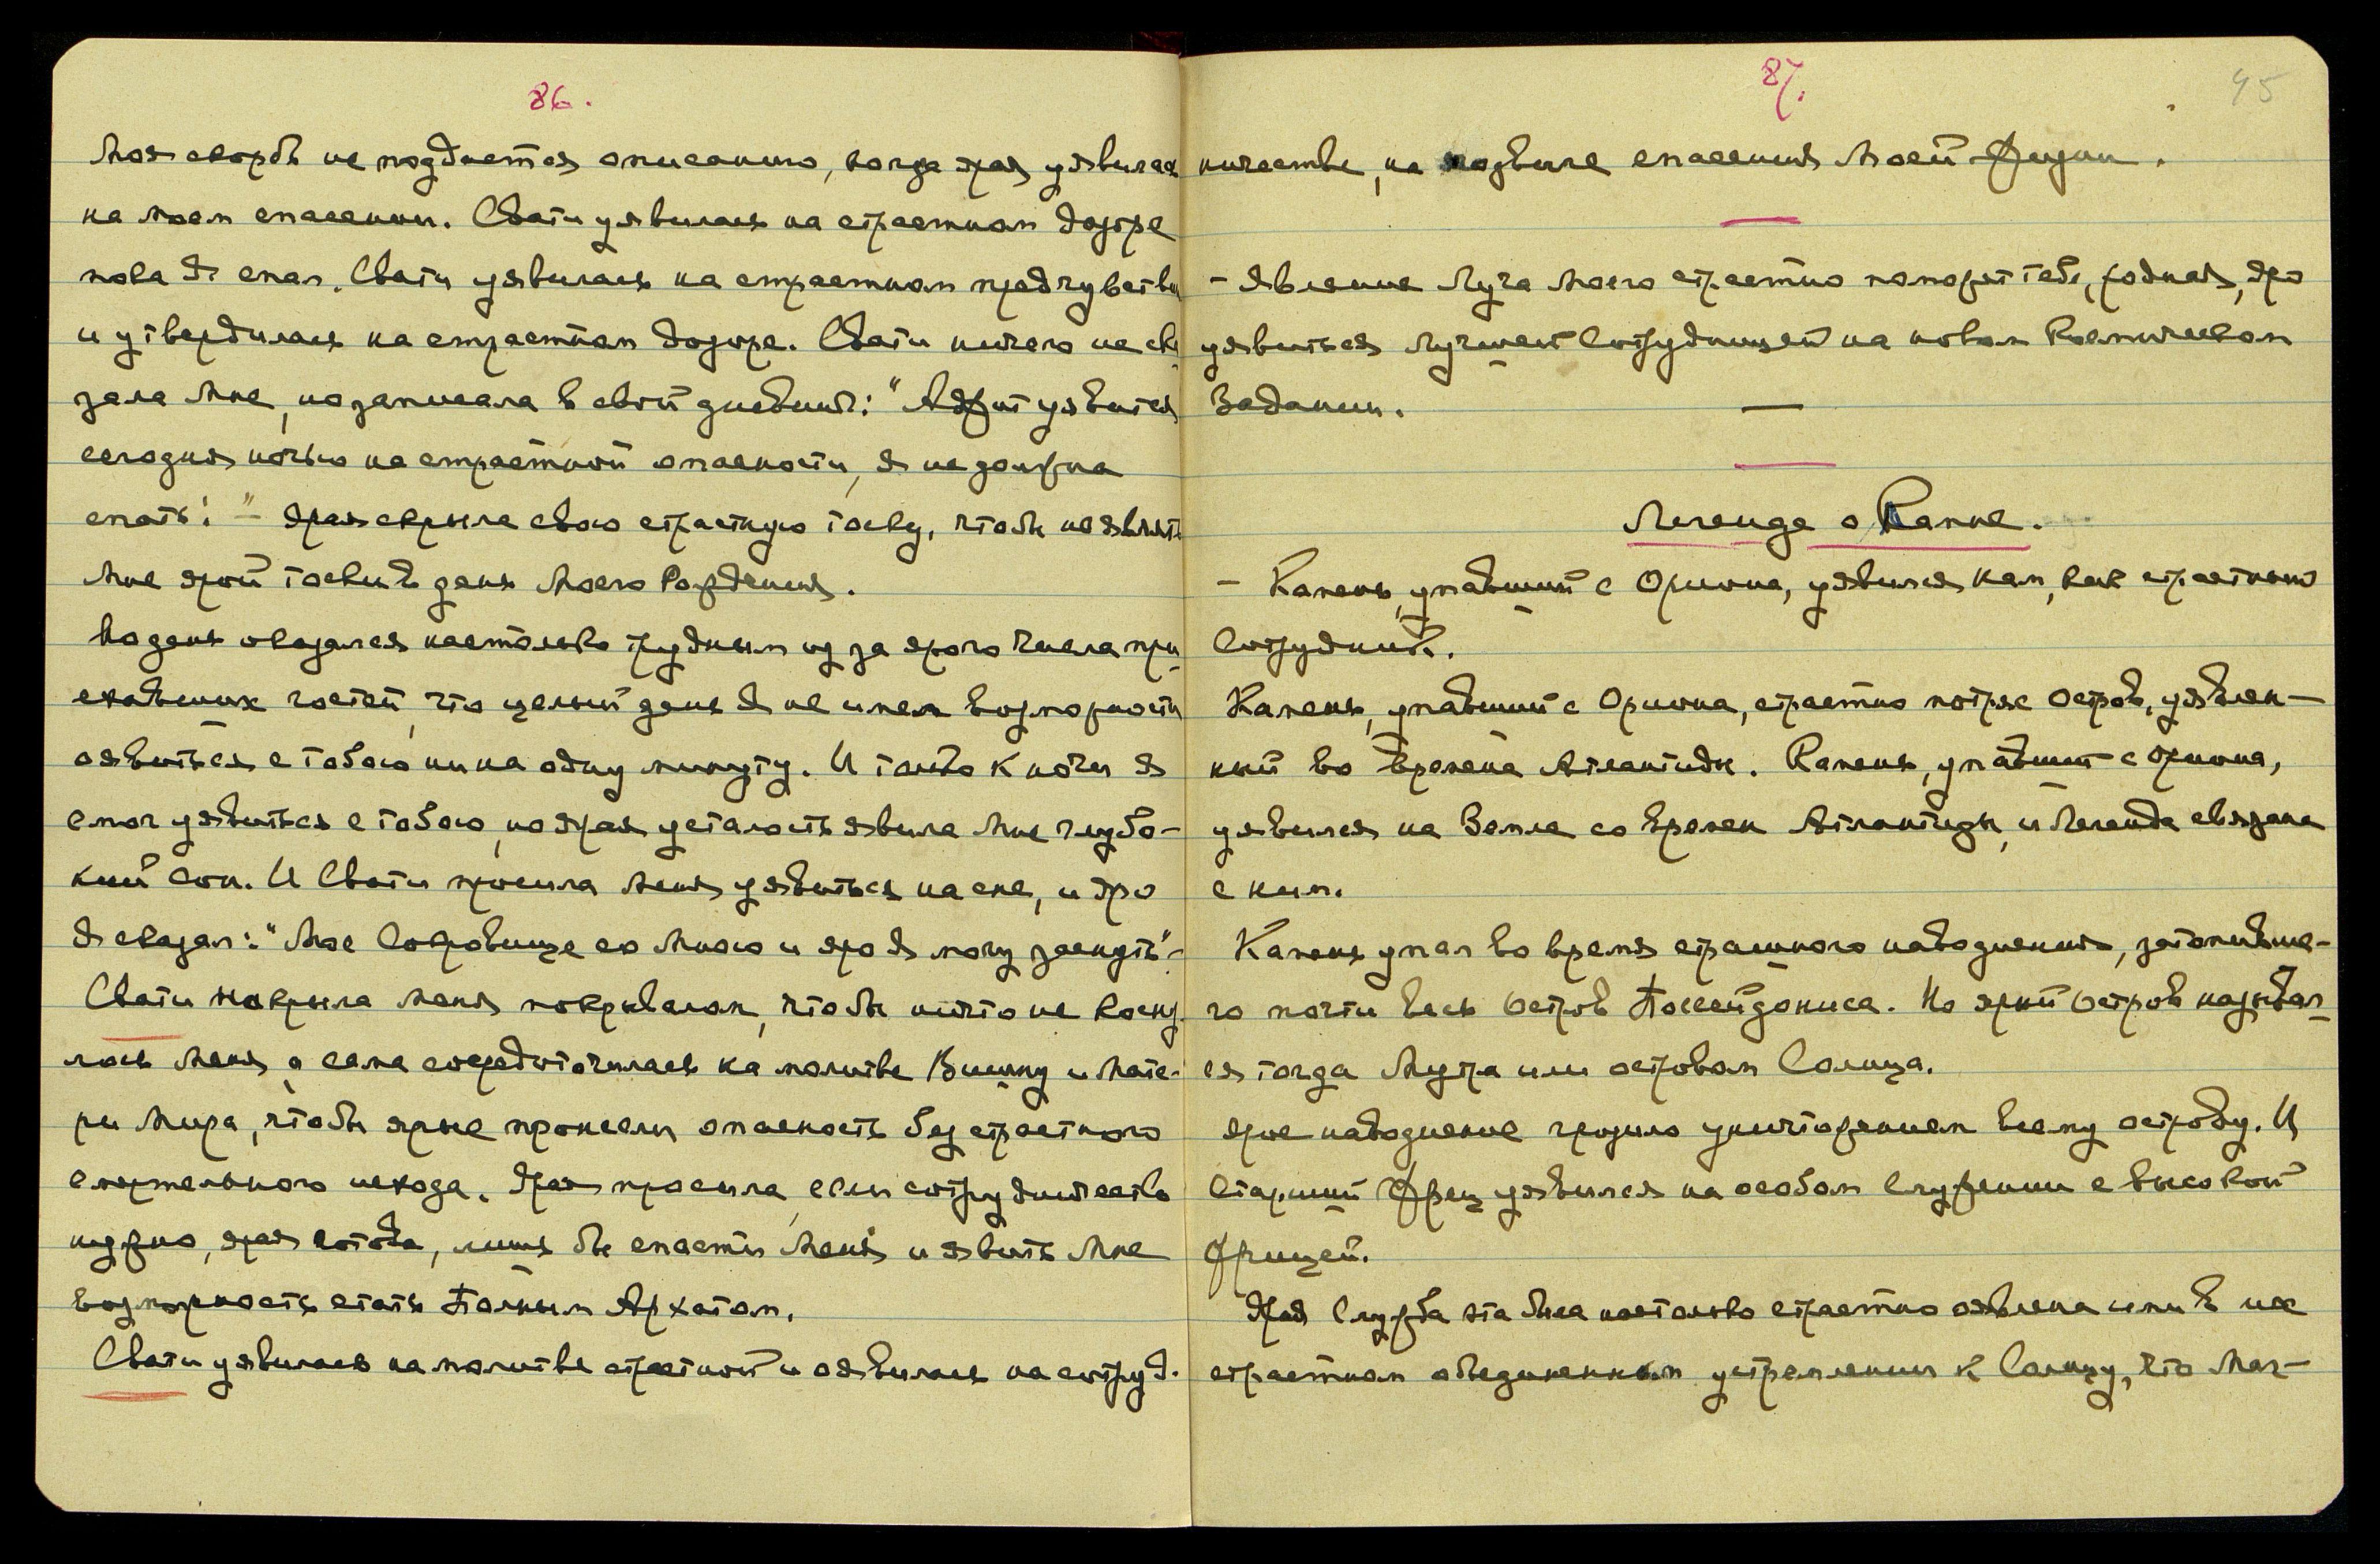 86.
Моя скорбь не поддается описанию, когда ярая уявилась
на моем спасении. Свати уявилась на страстном дозоре
пока Я спал. Свати уявилась на страстном предчувствии
и утвердилась на страстном дозоре. Свати ничего не ска-
зала Мне, но записала в свой дневник: "А уявится
сегодня ночью на страстной опасности, я не должна
спать!" – Ярая скрыла свою страстную тоску, чтобы не явить
Мне ярой тоски в день Моего Рождения.
Но день оказался настолько трудным из за ярого числа при-
ехавших гостей, что целый день Я не имел возможности
оявиться с тобою ни на одну минуту. И только к ночи Я
смог уявиться с тобою, но ярая усталость явила Мне глубо-
кий сон. И Свати просила Меня уявиться на сне, и яро
Я сказал: "Мое Сокровище со Мною и яро Я могу заснуть" –
Свати накрыла Меня покрывалом, чтобы ничто не косну-
лось Меня, а сама сосредоточилась на молитве Вишну и Мате-
ри Мира, чтобы ярые пронесли опасность без страстного
смертельного исхода. Ярая просила, если сотрудничество
нужно, ярая готова, лишь бы спасти Меня и явить Мне
возможность стать Полным Архатом.
Свати уявилась на молитве страстной и оявилась на сотруд-
87.
45
ничестве, на подвиге спасения Моей Жизни.
– Явление Луча Моего страстно поможет тебе, родная, яро
уявиться лучшей Сотрудницей на новом Космическом
Задании.
Легенда о Камне.
– Камень, упавший с Ориона, уявился нам, как страстный
Сотрудник.
Камень, упавший с Ориона, страстно потряс Остров, уявлен-
ный во времена Атлантиды. Камень, упавший с Ориона,
уявился на Земле со времен Атлантиды, и Легенда связана
с ним.
Камень упал во время страшного наводнения, затопивше-
го почти весь Остров Посейдониса. Но ярый Остров называл-
ся тогда Мутра или островом Солнца.
Ярое наводнение грозило уничтожением всему острову. И
Старший Жрец уявился на особом Служении с высокой
Жрицей.
Ярая Служба эта была настолько страстно оявлена ими в их
страстном объединенном устремлении к Солнцу, что Маг-